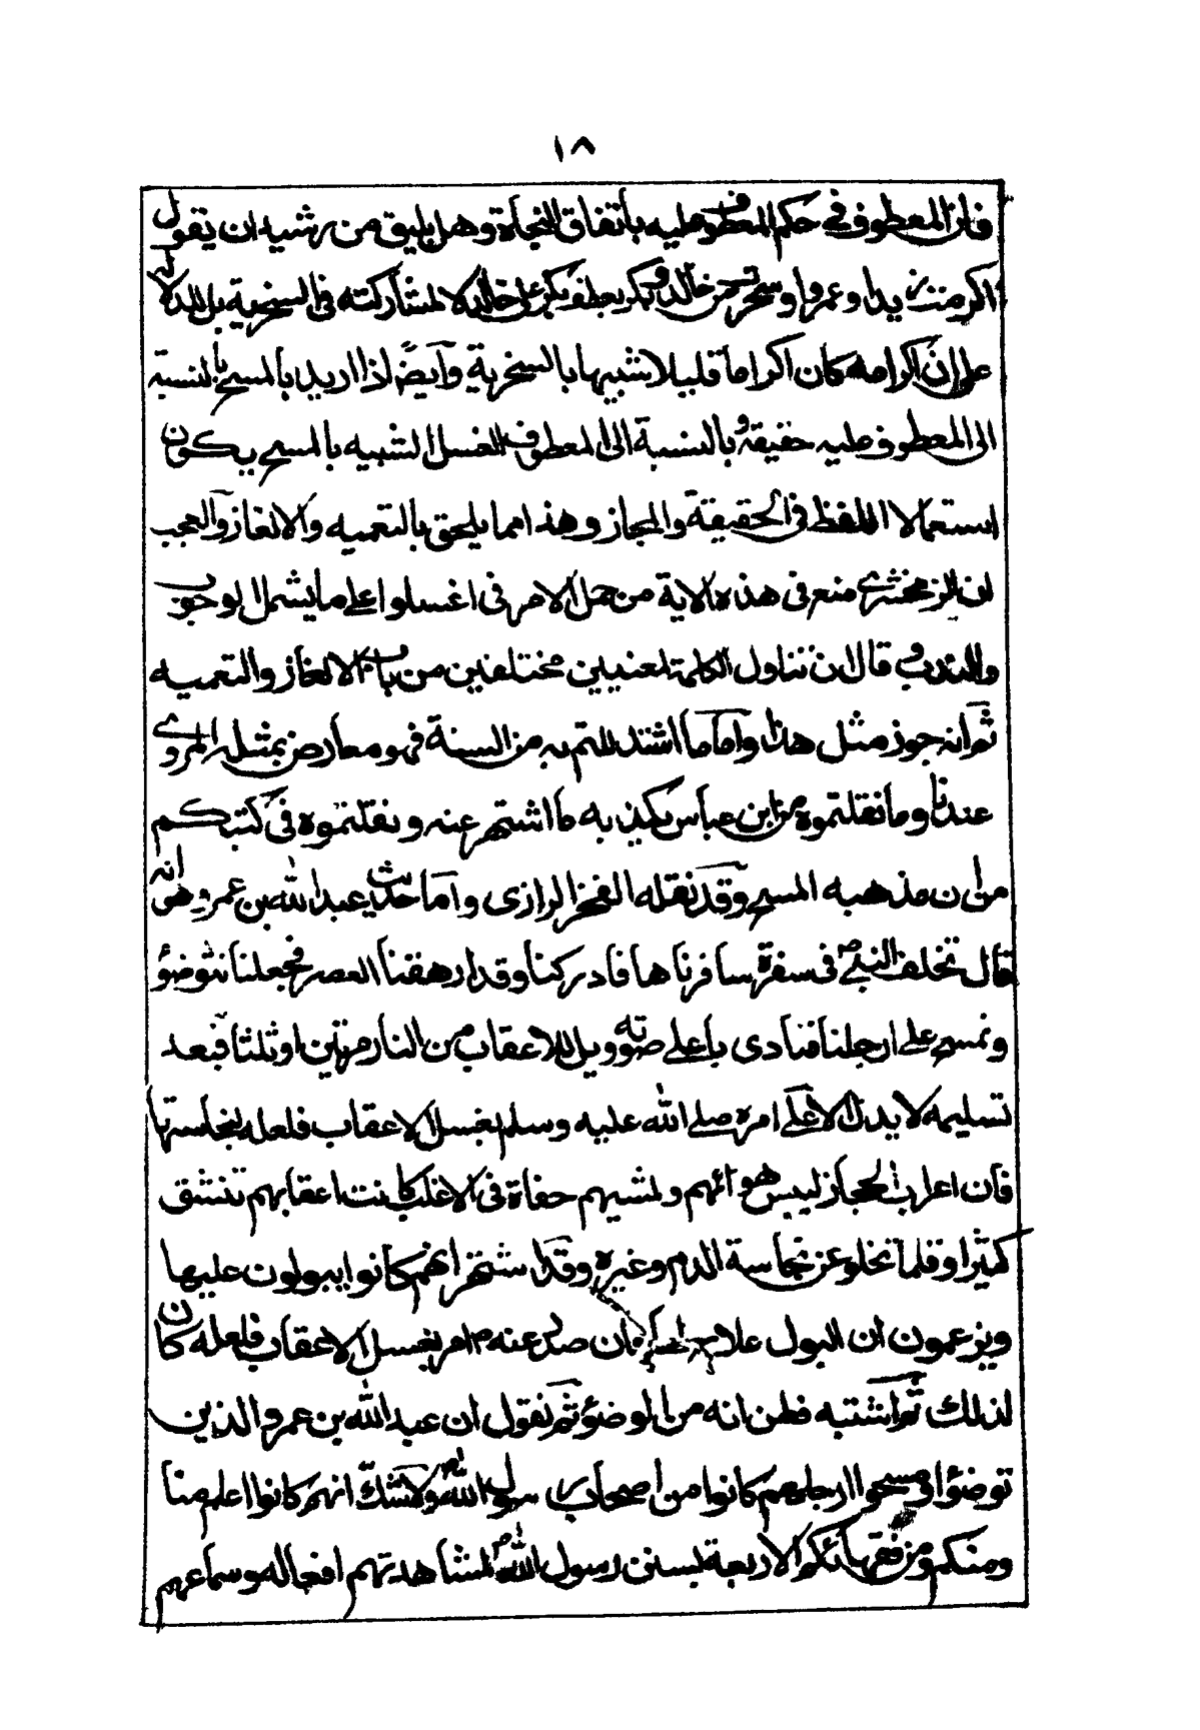 ١٨
فان المعطوف في حكم المعطوف عليه باتفاق النحاة وهل يليق من رشيد ان يقول
اكرمت زيدا وعمروا وسخرت من خالد وبكر بعطف بكر على خالد لا لمشاركته في السخرية بل للدلالة
على ان اكرامه كان اكراما قليلا شبيها بالسخرية وايضا اذا اريد بالمسح بالنسبة
الى المعطوف عليه حقيقة وبالنسبة الى المعطوف الغسل الشبيه بالمسح يكون
استعمالا اللفظ في الحقيقة والمجاز وهذا مما يلحق بالتعميه والالغاز والعجب
ان الزمخشري منع في هذه الاية من حمل الامر في اغسلوا على ما يشمل الوجوب
والندب وقال ان تناول الكلمة لمعنيين مختلفين من باب الالغاز والتعميه
ثم انه جوز مثل هذا واما ما اشتد للتم به من السنة فهو معارض بمثله المروي
عندنا وما نقلتموه من ابن عباس يكذبه ما اشتهر عنه ونقلتموه في كتبكم
من ان مذهبه المسح وقد نقله الفخر الرازى واما حديث عبد الله بن عمرو هى انه
قال تخلف النبي ص في سفرة سافرناها فادركنا وقد ارهقنا العصر فجعلنا نتوضؤ
ونمسح على ارجلنا فنادى باعلى صوته ويل للاعقاب من النار مرتين او ثلثا فبعد
تسليمه لا يدل الا على امره صلى الله عليه وسلم بغسل الاعقاب فلعله لنجاستها
فان اعراب الحجاز ليبس هوائهم ولمشيهم حفاة في الاغلب كانت اعقابهم تنشق
كثيرا وقلما تخلو عن نجاسة الدم وغيره وقد اشتهر انهم كانوا يبولون عليها
ويزعمون ان البول علاج فان صدر عنه ص امر بغسل الاعقاب فلعله كان
لذلك ثم اشتبه فظن انه من الوضوء ثم نقول ان عبد الله بن عمرو الذين
توضؤا ومسحوا ارجلهم كانوا من اصحاب رسول الله ص ولا شك انهم كانوا اعلم منا
ومنكم ومن فقهائكم الاربعة بسنن رسول الله ص لمشاهدتهم افعاله وسماعهم